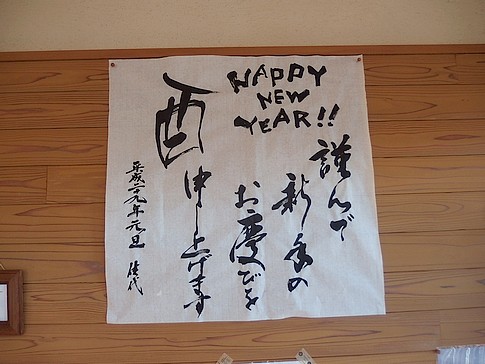 HAPPY
NEW
YEAR!!
謹んで
新年の
お慶びを
申し上げます
酉
平成二十九年元旦